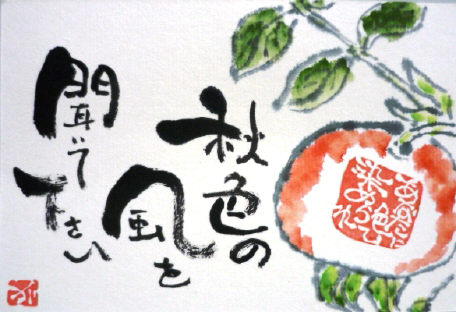 秋色の
風を
聞いて
下さい